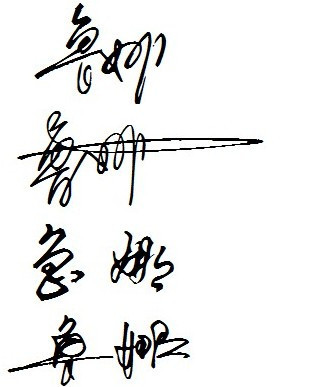 鲁娜
鲁娜
鲁娜
鲁娜